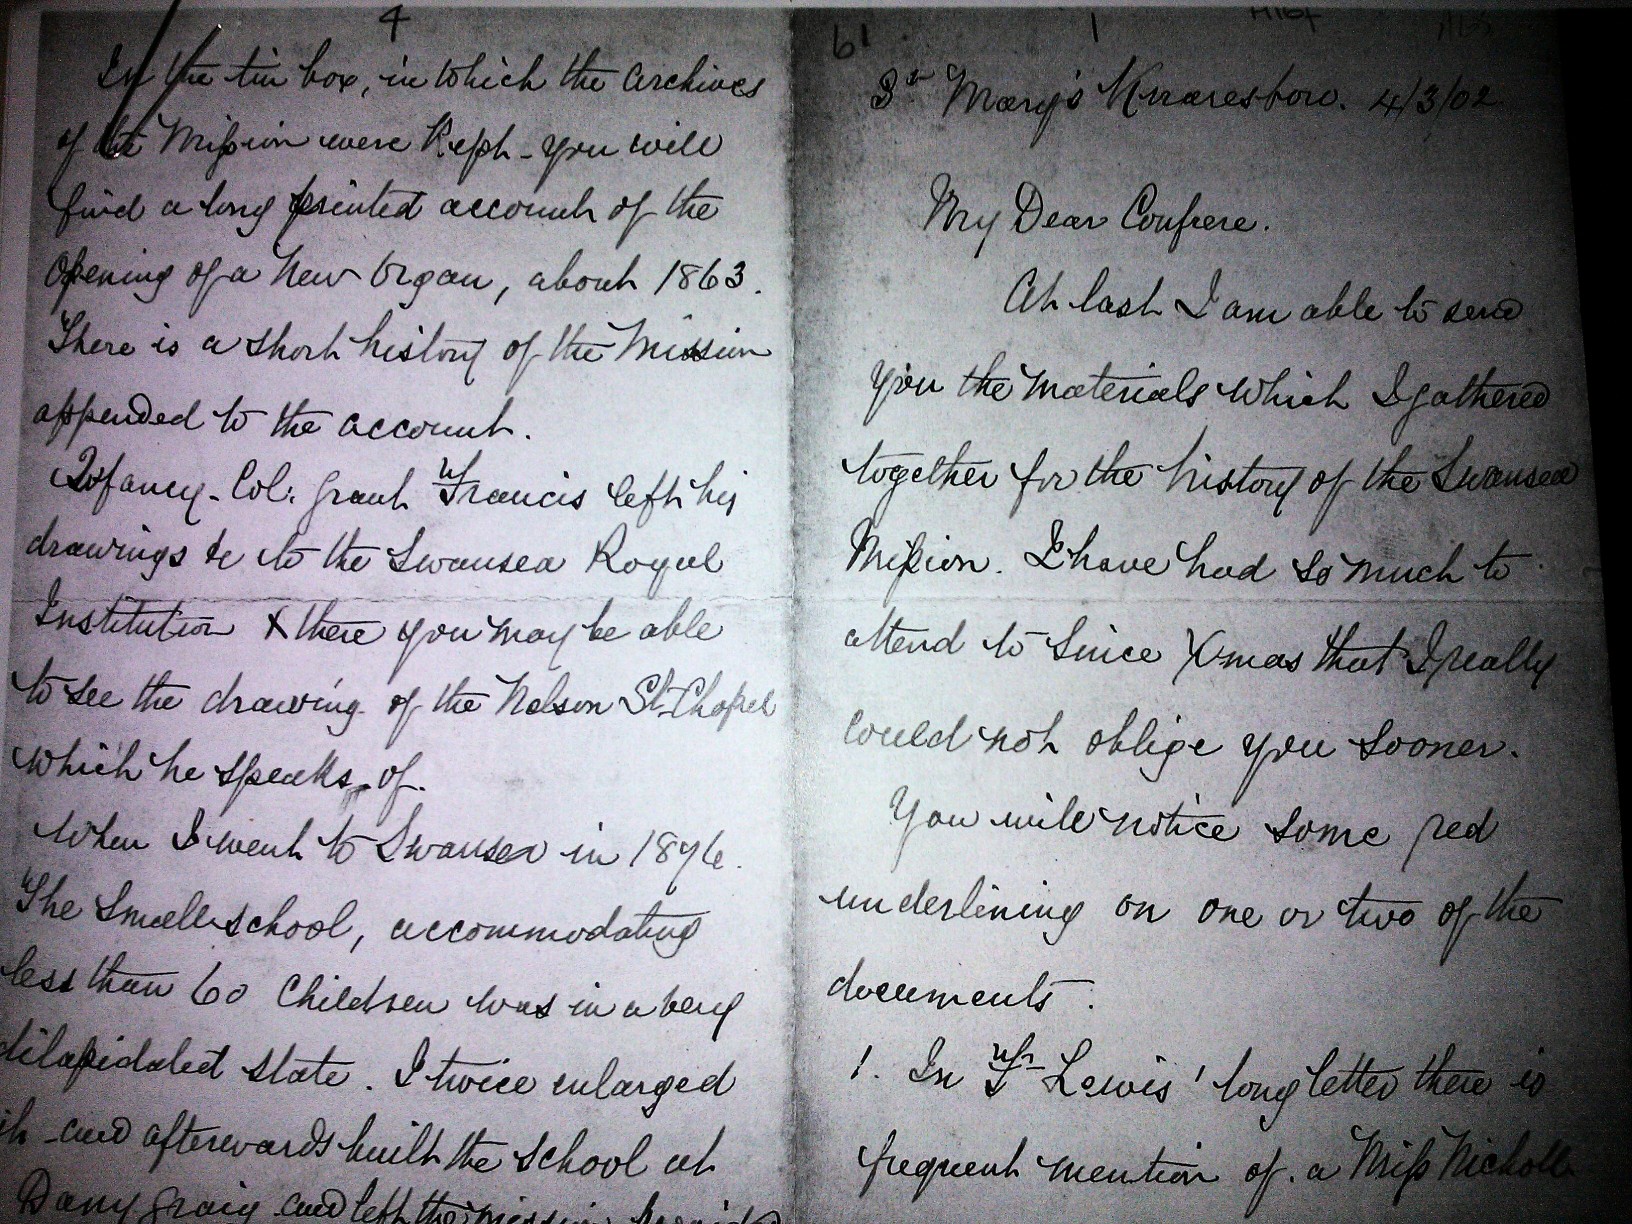 4
In the tin box, in which the archives
of the Mission were kept - you will
find a long printed account of the
opening of a new organ, about 1863.
There is a short history of the Mission
appended to the account.
I fancy - Col: Grant Francis left his
drawings &c to the Swansea Royal
Institution & there you may be able
to see the drawing of the Nelson St. Chapel
which he speaks of.
When I went to Swansea in 1876.
The small school, accommodating
less than 60 children was in a very
dilapidated state. I twice enlarged
it - and afterwards built the school at
Danygraig and left the mission
61 1
St Mary's Knaresboro. 4/3/02
My Dear Confrere.
At last I am able to send
you the materials which I gathered
together for the history of the Swansea
Mission. I have had so much to
attend to since Xmas that I really
could not oblige you sooner.
You will notice some red
underlining on one or two of the
documents.
1. In Fr Lewis' long letter there is
frequent mention of a Miss Nicholl